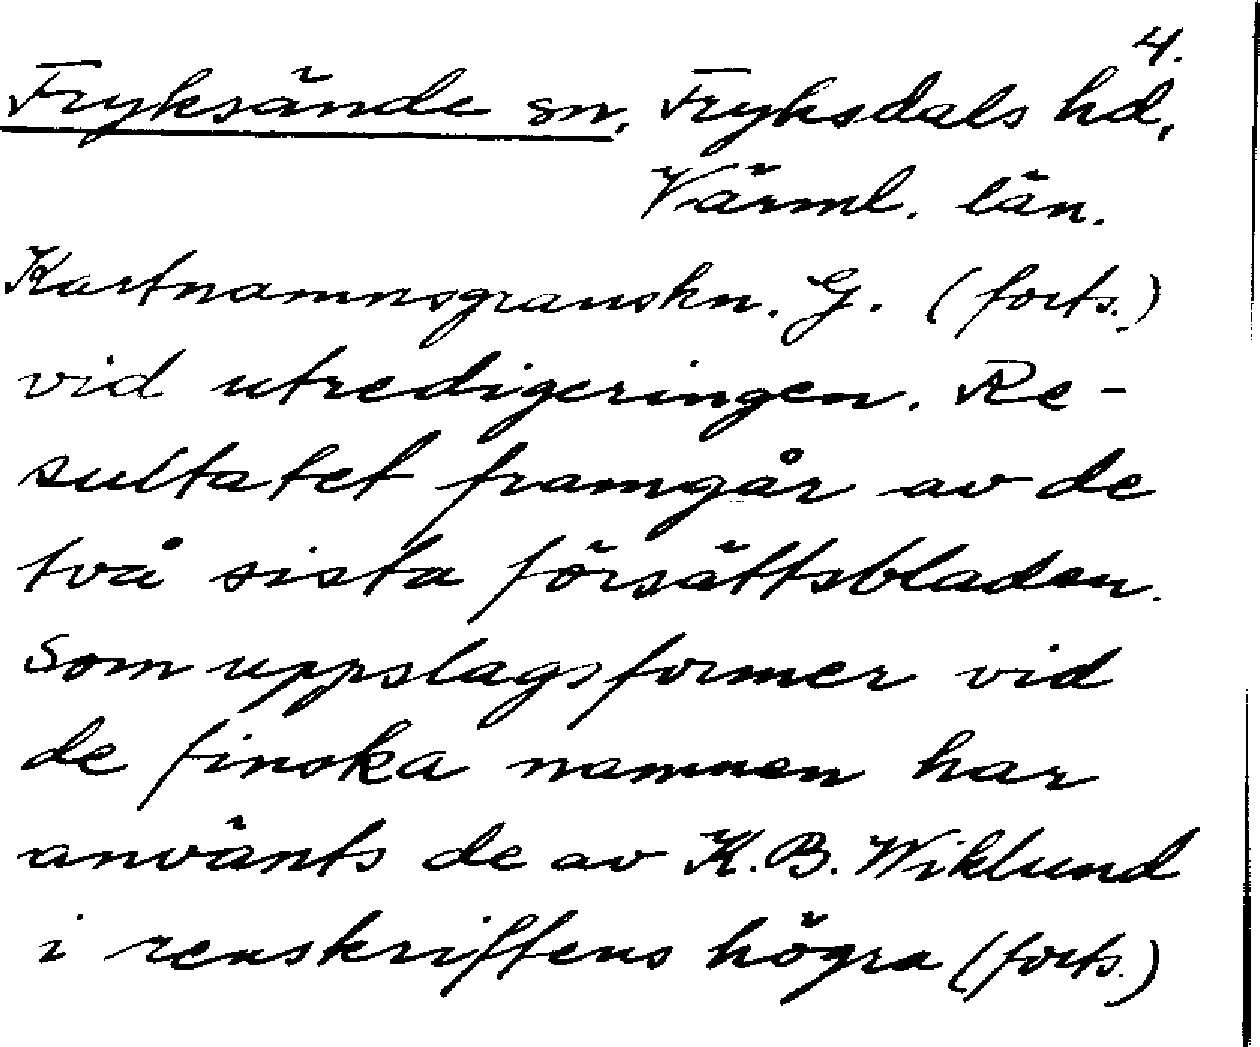 4.
Fryksände sn, Fryksdals hd,
Värml. län.
Kartnamnsgranskn. G. (forts.)
vid utredigeringen. Re-
sultatet framgår av de
två sista försättsbladen.
Som uppslagsformer vid
de finska namnen har
använts de av K.B. Wiklund
i renskriftens högra (forts.)